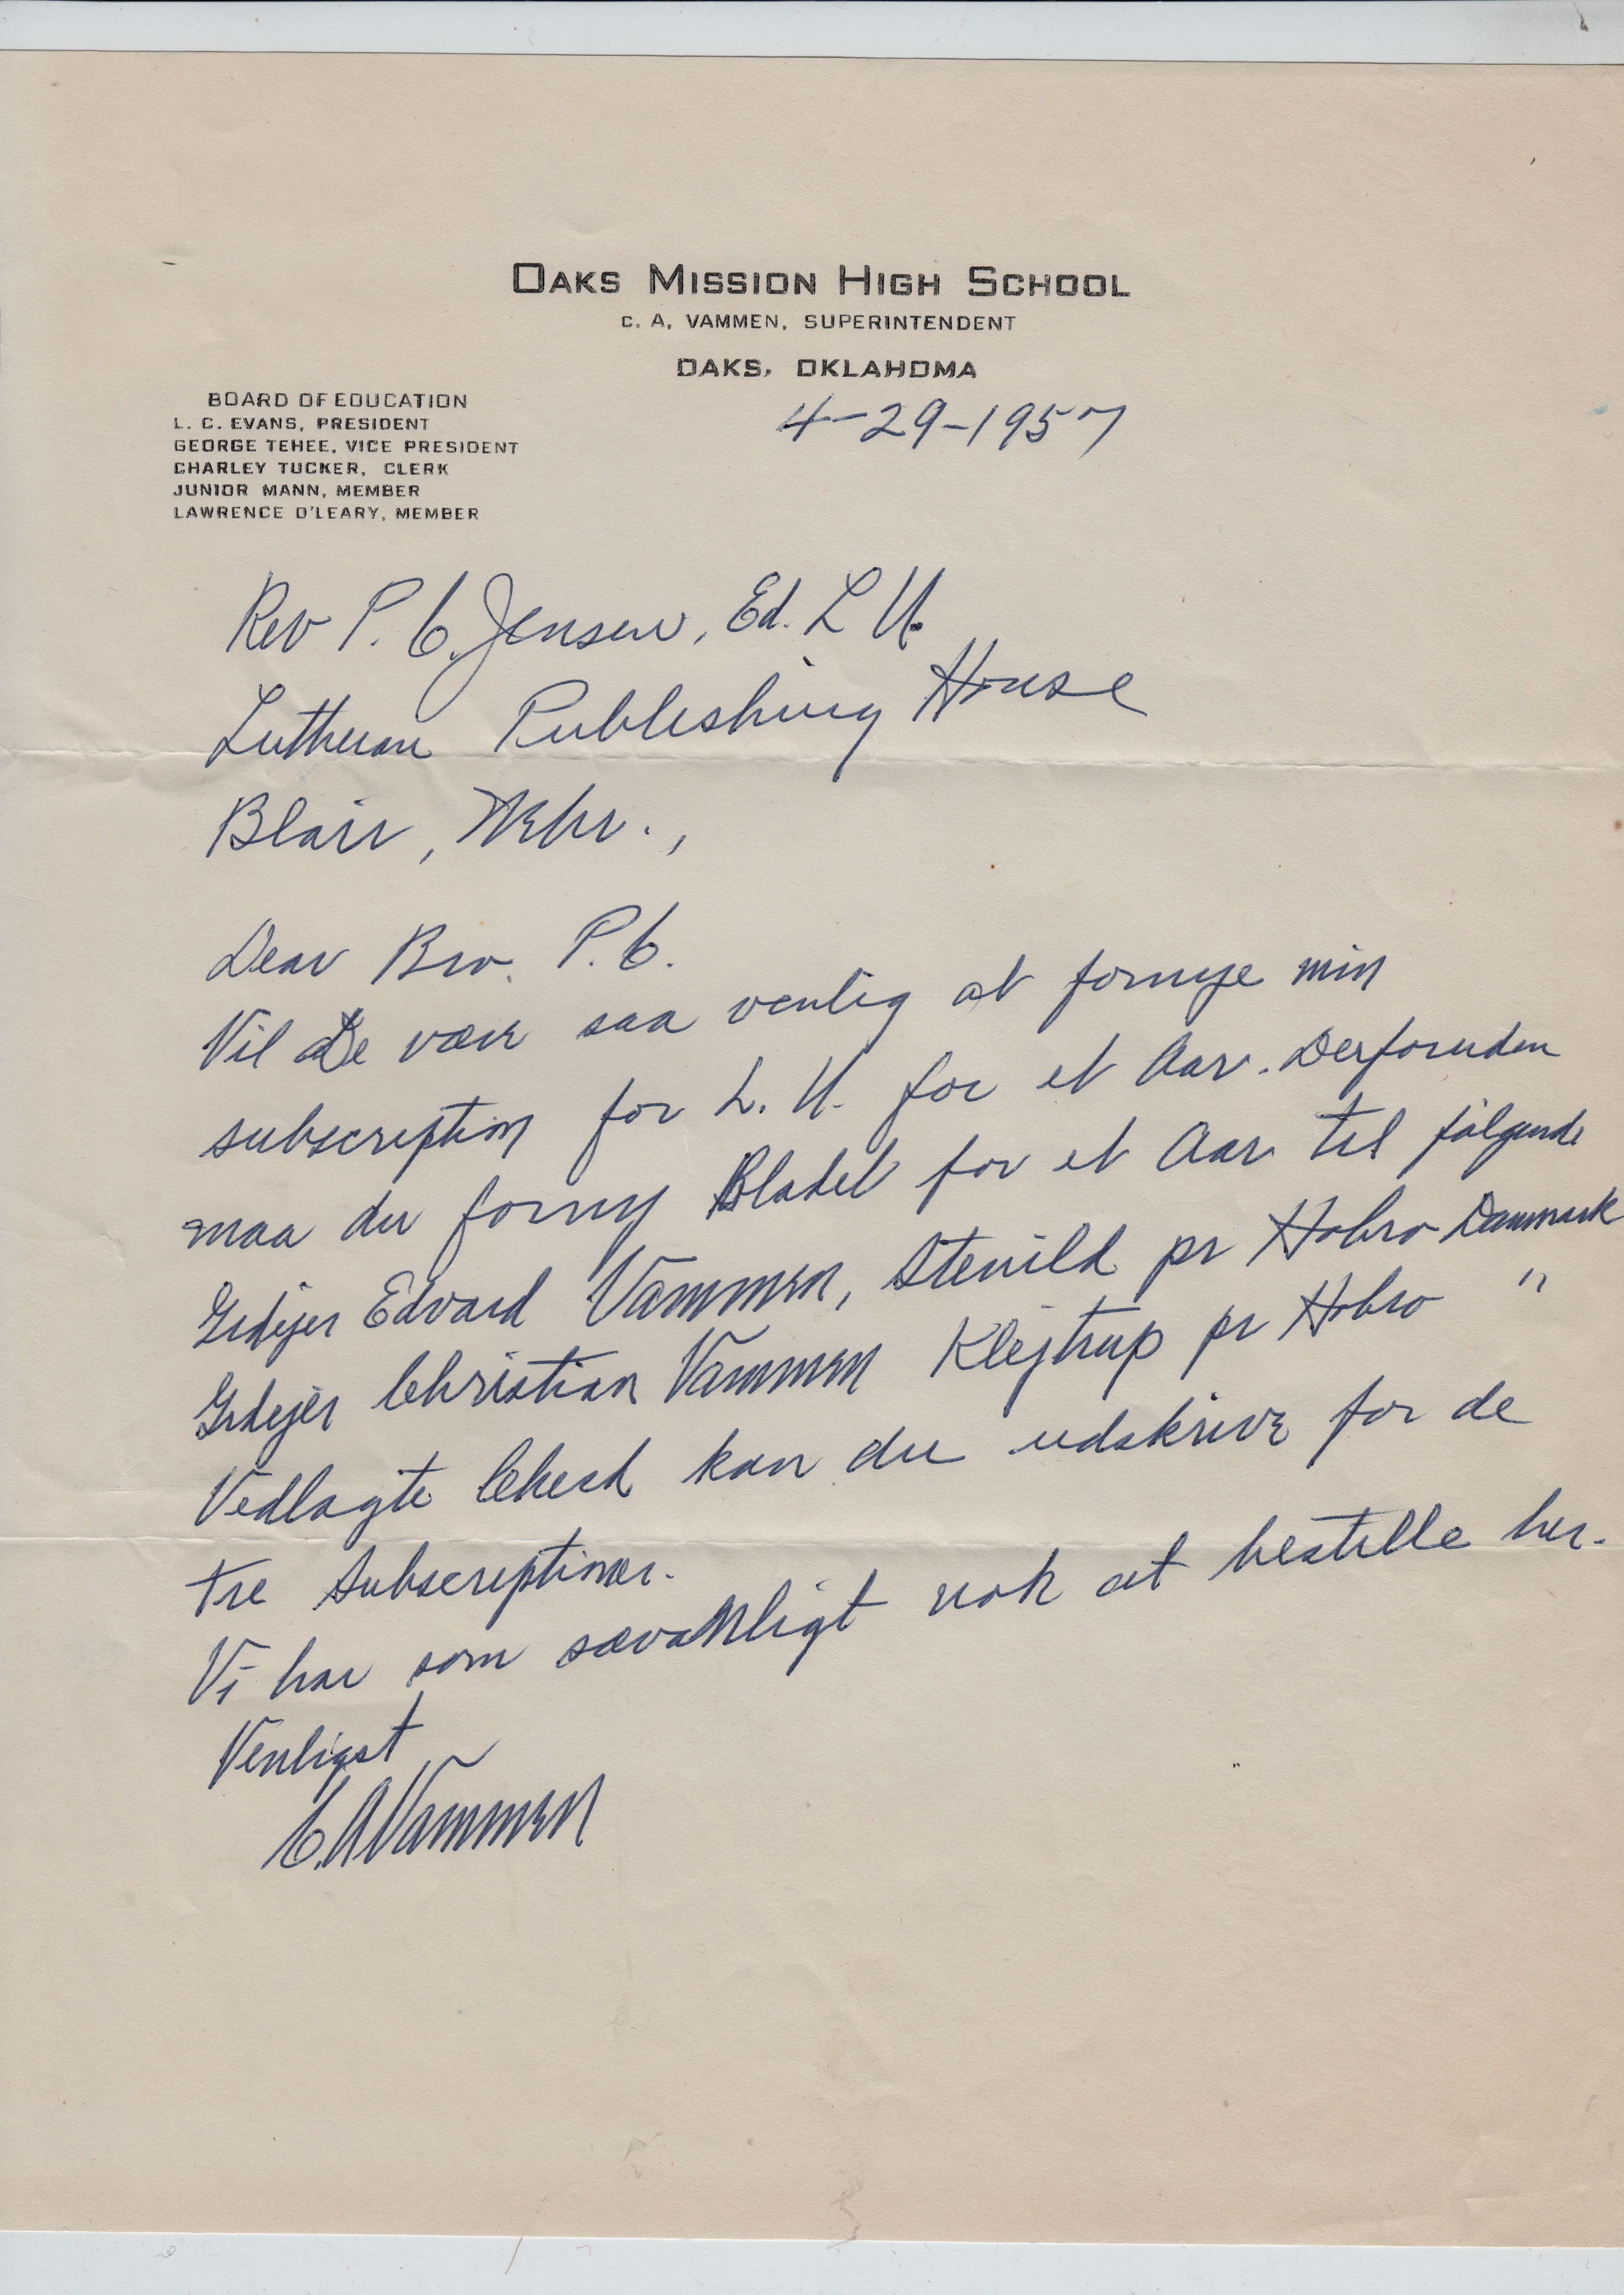 OAKS MISSION HIGH SCHOOL
C. A. VAMMEN, SUPERINTENDENT
OAKS, OKLAHOMA
4-29-1957
BOARD OF EDUCATION
L. C. EVANS, PRESIDENT
GEORGE TEHEE, VICE PRESIDENT
CHARLEY TUCKER, CLERK
JUNIOR MANN, MEMBER
LAWRENCE O'LEARY, MEMBER
Rev P. C. Jensen, Ed. L U.
Lutheran Publishing House
Blair, Nebr.,
Dear Bro. P. C.
Vil De være saa venlig at fornye min
subscription for L. U. for et Aar. Derforuden
maa du forny Bladet for et Aar til følgende
Grdejer Edvard Vammen, Stenild pr Hobro Danmark
Grdejer Christian Vammen Klejtrup pr Hobro "
Vedlagte Check kan du udskrive for de
tre Subscriptioner.
Vi har som sævanligt nok at bestille her.
Venligst
C. A Vammen